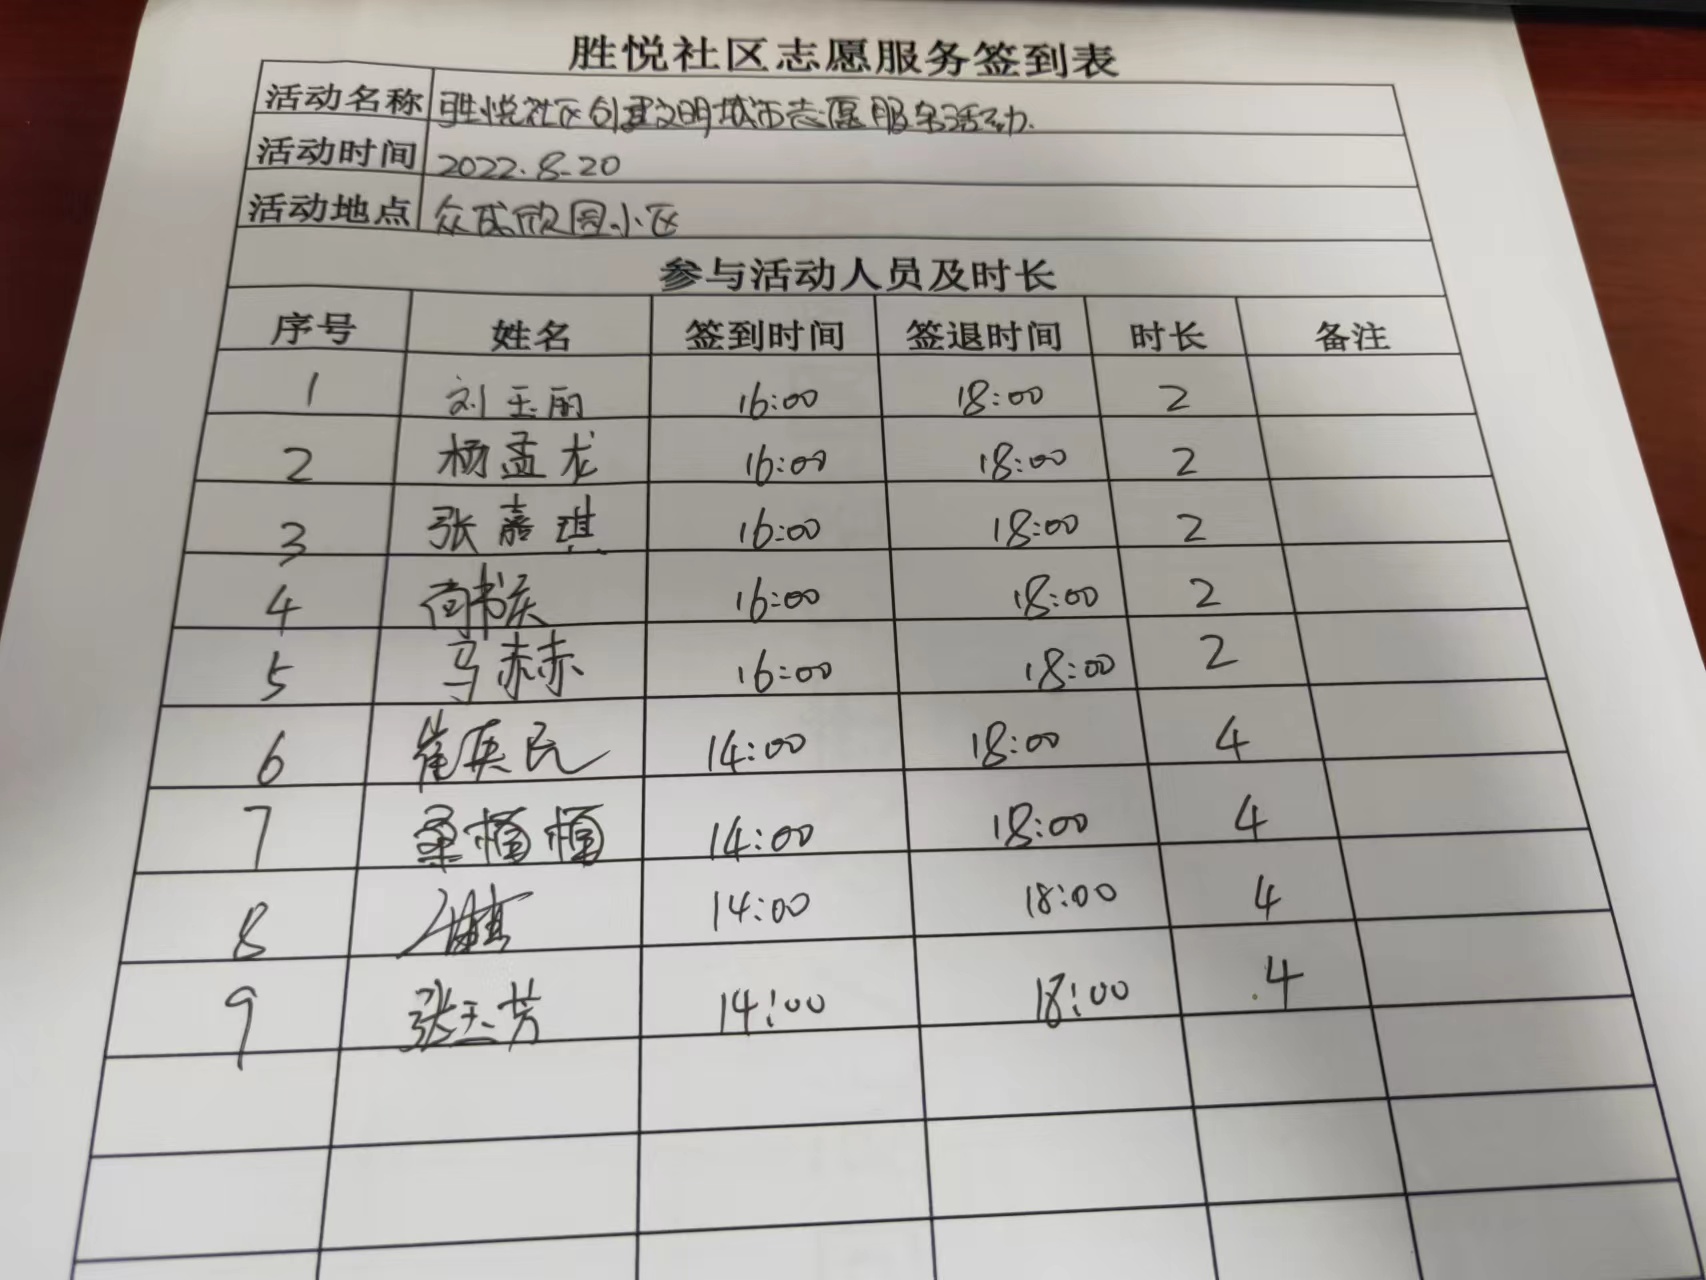 胜悦社区志愿服务签到表
活动名称 胜悦社区创建文明城市志愿服务活动.
活动时间 2022.8.20
活动地点 众成欣园小区
参与活动人员及时长
序号 姓名 签到时间 签退时间 时长 备注
1 刘玉丽 16:00 18:00 2
2 杨孟龙 16:00 18:00 2
3 张嘉琪 16:00 18:00 2
4 尚书庆 16:00 18:00 2
5 马赫 16:00 18:00 2
6 崔英民 14:00 18:00 4
7 桑恒恒 14:00 18:00 4
8 14:00 18:00 4
9 张玉芳 14:00 18:00 4